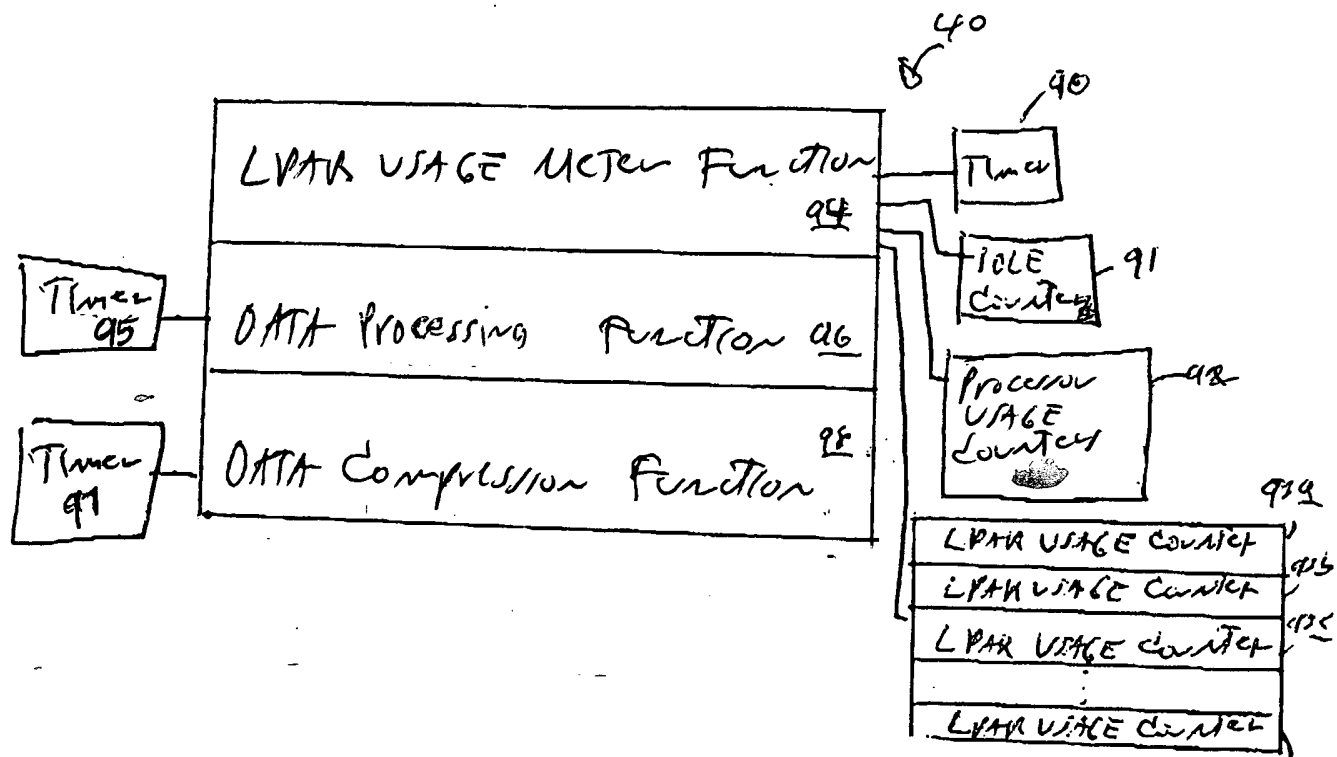 40
90
LPAR USAGE METER FUNCTION
94
TIMER
IDLE
COUNTER
91
TIMER
95
DATA PROCESSING FUNCTION 96
PROCESSOR
USAGE
COUNTERS
92
TIMER
97
DATA COMPRESSION FUNCTION
98
93a
LPAR USAGE COUNTER
93b
LPAR USAGE COUNTER
93c
LPAR USAGE COUNTER
LPAR USAGE COUNTER